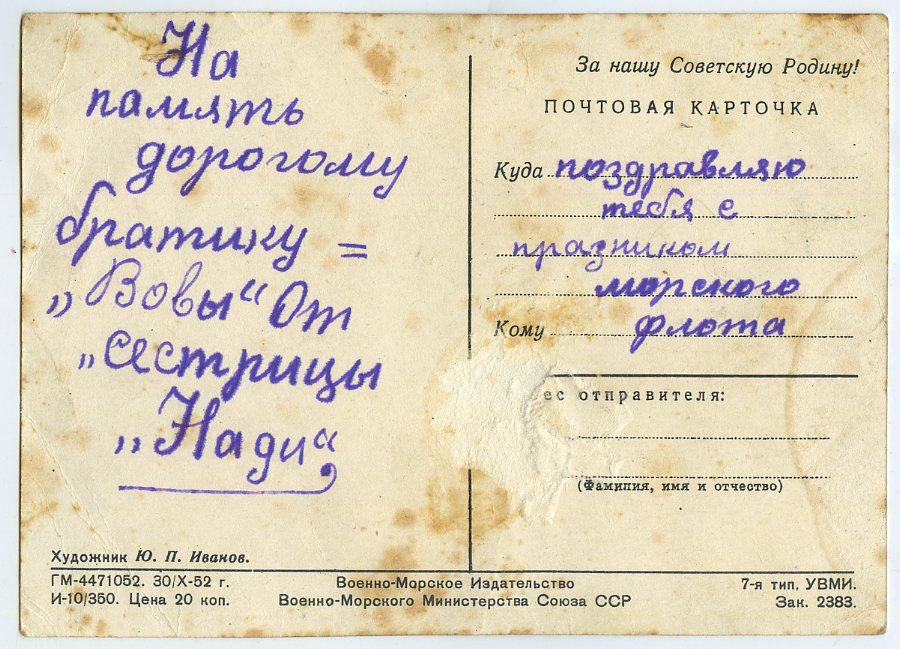 На
память
дорогому
братику =
„Вовы“ От
„сестрицы
„Нади“
За нашу Советскую Родину!
ПОЧТОВАЯ КАРТОЧКА
Куда поздравляю
тебя с
празником
морского
Кому флота
ес отправителя:
(Фамилия, имя и отчество)
Художник Ю. П. Иванов.
ГМ-4471052. 30/X-52 г.
И-10/350. Цена 20 коп.
Военно-Морское Издательство
Военно-Морского Министерства Союза ССР
7-я тип. УВМИ.
Зак. 2383.